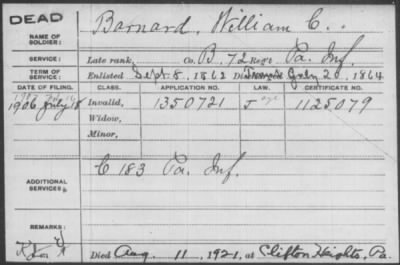 DEAD
NAME OF SOLDIER: Barnard, William C.
SERVICE: Late rank Co. B, 72 Reg't Pa. Inf.
TERM OF SERVICE: Enlisted Sept. 8, 1862 July 20, 1864
DATE OF FILING. CLASS. APPLICATION NO. LAW. CERTIFICATE NO.
1906 July 18 Invalid, 1350721 J 1125079
Widow,
Minor,
ADDITIONAL SERVICES: C 183 Pa. Inf.
REMARKS:
Died Aug. 11, 1921, at Clifton Heights, Pa.